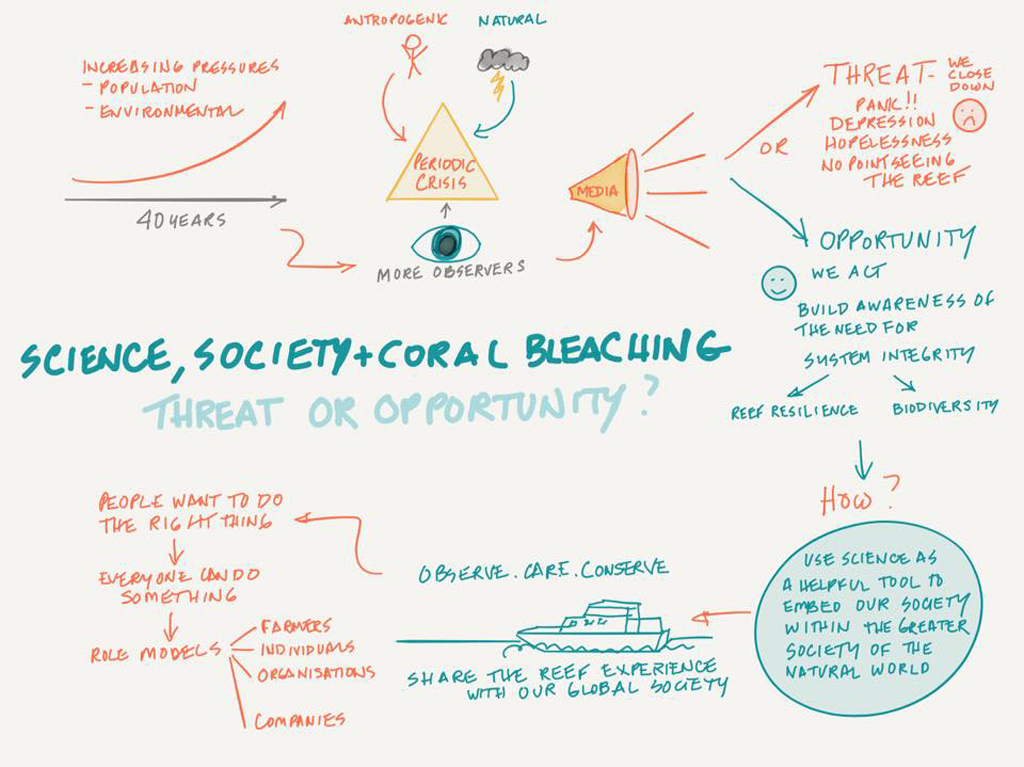 ANTROPOGENIC
NATURAL
INCREASING PRESSURES
- POPULATION
- ENVIRONMENTAL
40 YEARS
PERIODIC
CRISIS
MORE OBSERVERS
MEDIA
OR
THREAT- WE
CLOSE
DOWN
PANIC!!
DEPRESSION
HOPELESSNESS
NO POINT SEEING
THE REEF
OPPORTUNITY
WE ACT
BUILD AWARENESS OF
THE NEED FOR
SYSTEM INTEGRITY
REEF RESILIENCE
BIODIVERSITY
SCIENCE, SOCIETY + CORAL BLEACHING
THREAT OR OPPORTUNITY?
HOW?
USE SCIENCE AS
A HELPFUL TOOL TO
EMBED OUR SOCIETY
WITHIN THE GREATER
SOCIETY OF THE
NATURAL WORLD
OBSERVE. CARE. CONSERVE
SHARE THE REEF EXPERIENCE
WITH OUR GLOBAL SOCIETY
PEOPLE WANT TO DO
THE RIGHT THING
EVERYONE CAN DO
SOMETHING
ROLE MODELS
- FARMERS
- INDIVIDUALS
- ORGANISATIONS
COMPANIES